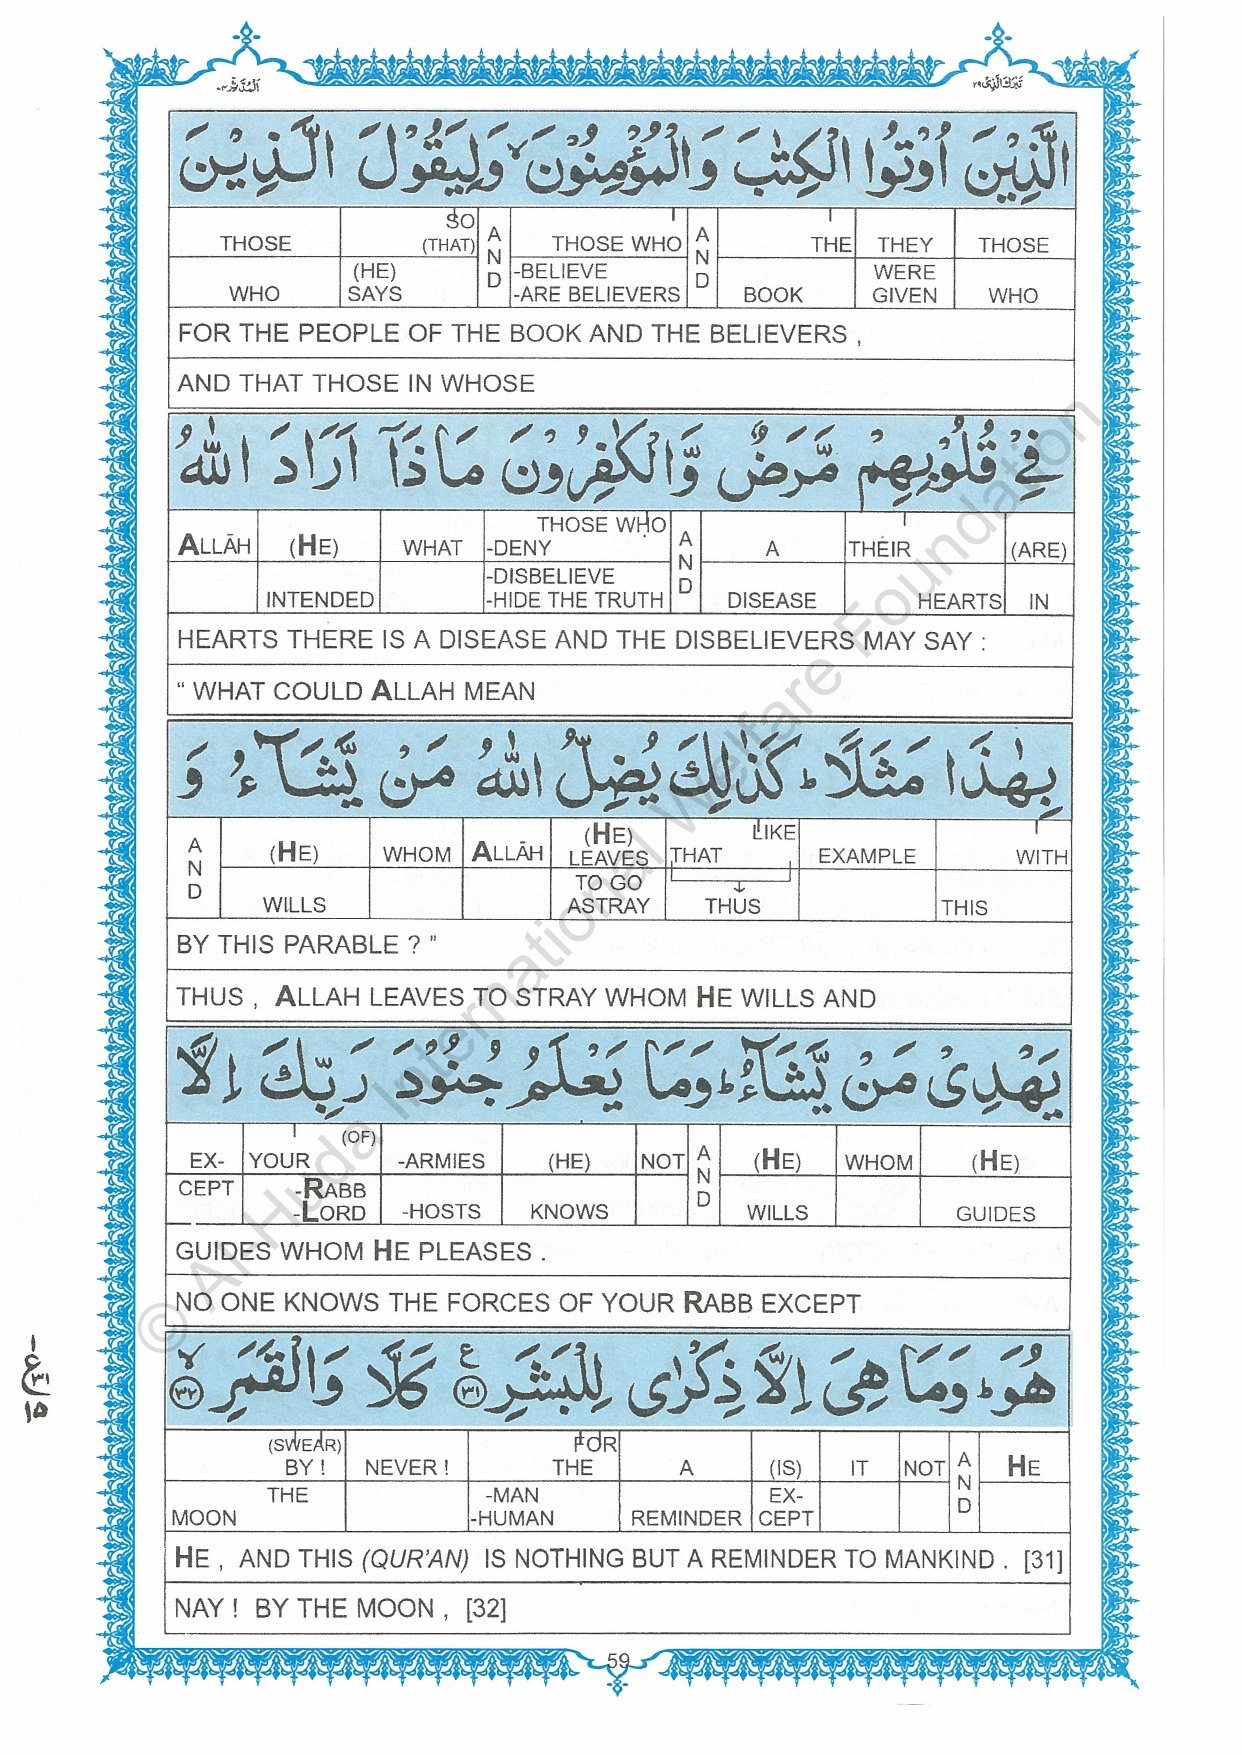 المدثر ٧٤
تبرك الذي ٢٩
الَّذِيْنَ اُوْتُوا الْكِتٰبَ وَالْمُؤْمِنُوْنَ ۙ وَلِيَقُوْلَ الَّذِيْنَ
THOSE WHO | SO (THAT) (HE) SAYS | AND | THOSE WHO -BELIEVE -ARE BELIEVERS | AND | THE BOOK | THEY WERE GIVEN | THOSE WHO
FOR THE PEOPLE OF THE BOOK AND THE BELIEVERS ,
AND THAT THOSE IN WHOSE
فِيْ قُلُوْبِهِمْ مَّرَضٌ وَّالْكٰفِرُوْنَ مَاذَآ اَرَادَ اللّٰهُ
ALLĀH | (HE) INTENDED | WHAT | THOSE WHO -DENY -DISBELIEVE -HIDE THE TRUTH | AND | A DISEASE | THEIR HEARTS | (ARE) IN
HEARTS THERE IS A DISEASE AND THE DISBELIEVERS MAY SAY :
“ WHAT COULD ALLAH MEAN
بِهٰذَا مَثَلًا ؕ كَذٰلِكَ يُضِلُّ اللّٰهُ مَنْ يَّشَآءُ وَ
AND | (HE) WILLS | WHOM | ALLĀH | (HE) LEAVES TO GO ASTRAY | LIKE THAT THUS | EXAMPLE | WITH THIS
BY THIS PARABLE ? ”
THUS , ALLAH LEAVES TO STRAY WHOM HE WILLS AND
يَهْدِيْ مَنْ يَّشَآءُ ؕ وَمَا يَعْلَمُ جُنُوْدَ رَبِّكَ اِلَّا
EX-CEPT | YOUR (OF) -RABB -LORD | -ARMIES -HOSTS | (HE) KNOWS | NOT | AND | (HE) WILLS | WHOM | (HE) GUIDES
GUIDES WHOM HE PLEASES .
NO ONE KNOWS THE FORCES OF YOUR RABB EXCEPT
هُوَ ؕ وَمَا هِيَ اِلَّا ذِكْرٰى لِلْبَشَرِ ࣖ ٣١ كَلَّا وَالْقَمَرِ ۙ ٣٢
(SWEAR) BY ! THE MOON | NEVER ! | FOR THE -MAN -HUMAN | A REMINDER | (IS) EX-CEPT | IT | NOT | AND | HE
HE , AND THIS (QUR’AN) IS NOTHING BUT A REMINDER TO MANKIND . [31]
NAY ! BY THE MOON , [32]
١
ع
٣١
١٥
59
© Al-Huda International Welfare Foundation